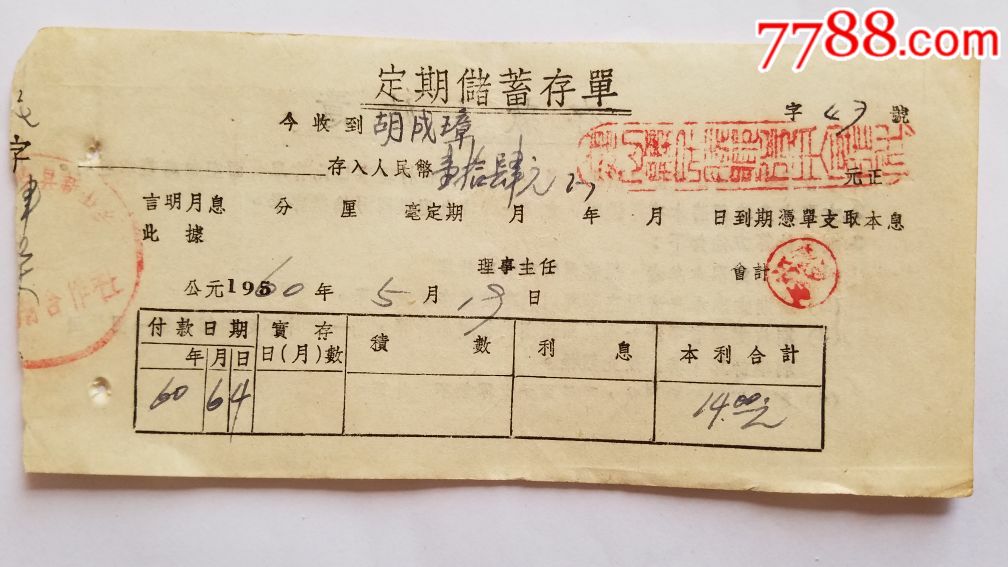 7788.com
定期儲蓄存單
字 43 號
今收到 胡成璋
存入人民幣 壹拾肆元 元正
言明月息 分 厘 毫定期 月 年 月 日到期憑單支取本息
此據
理事主任 會計
公元1960年 5 月 19 日
付款日期 實存日(月)數 積數 利息 本利合計
年 月 日
60 6 4 14.00元
字